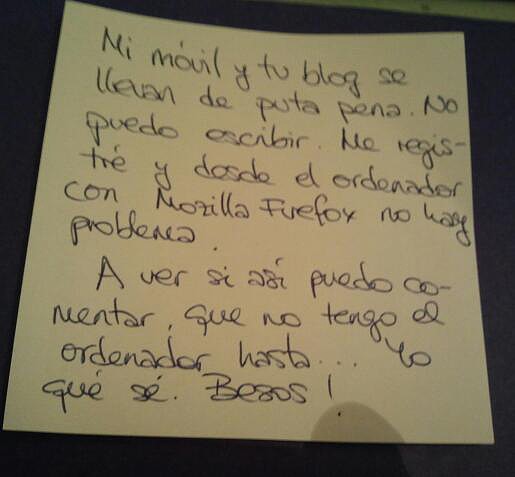 Mi móvil y tu blog se
llevan de puta pena. No
puedo escribir. Me regis-
tré y desde el ordenador
con Mozilla Firefox no hay
problema.
A ver si así puedo co-
mentar, que no tengo el
ordenador hasta... Yo
qué sé. Besos!